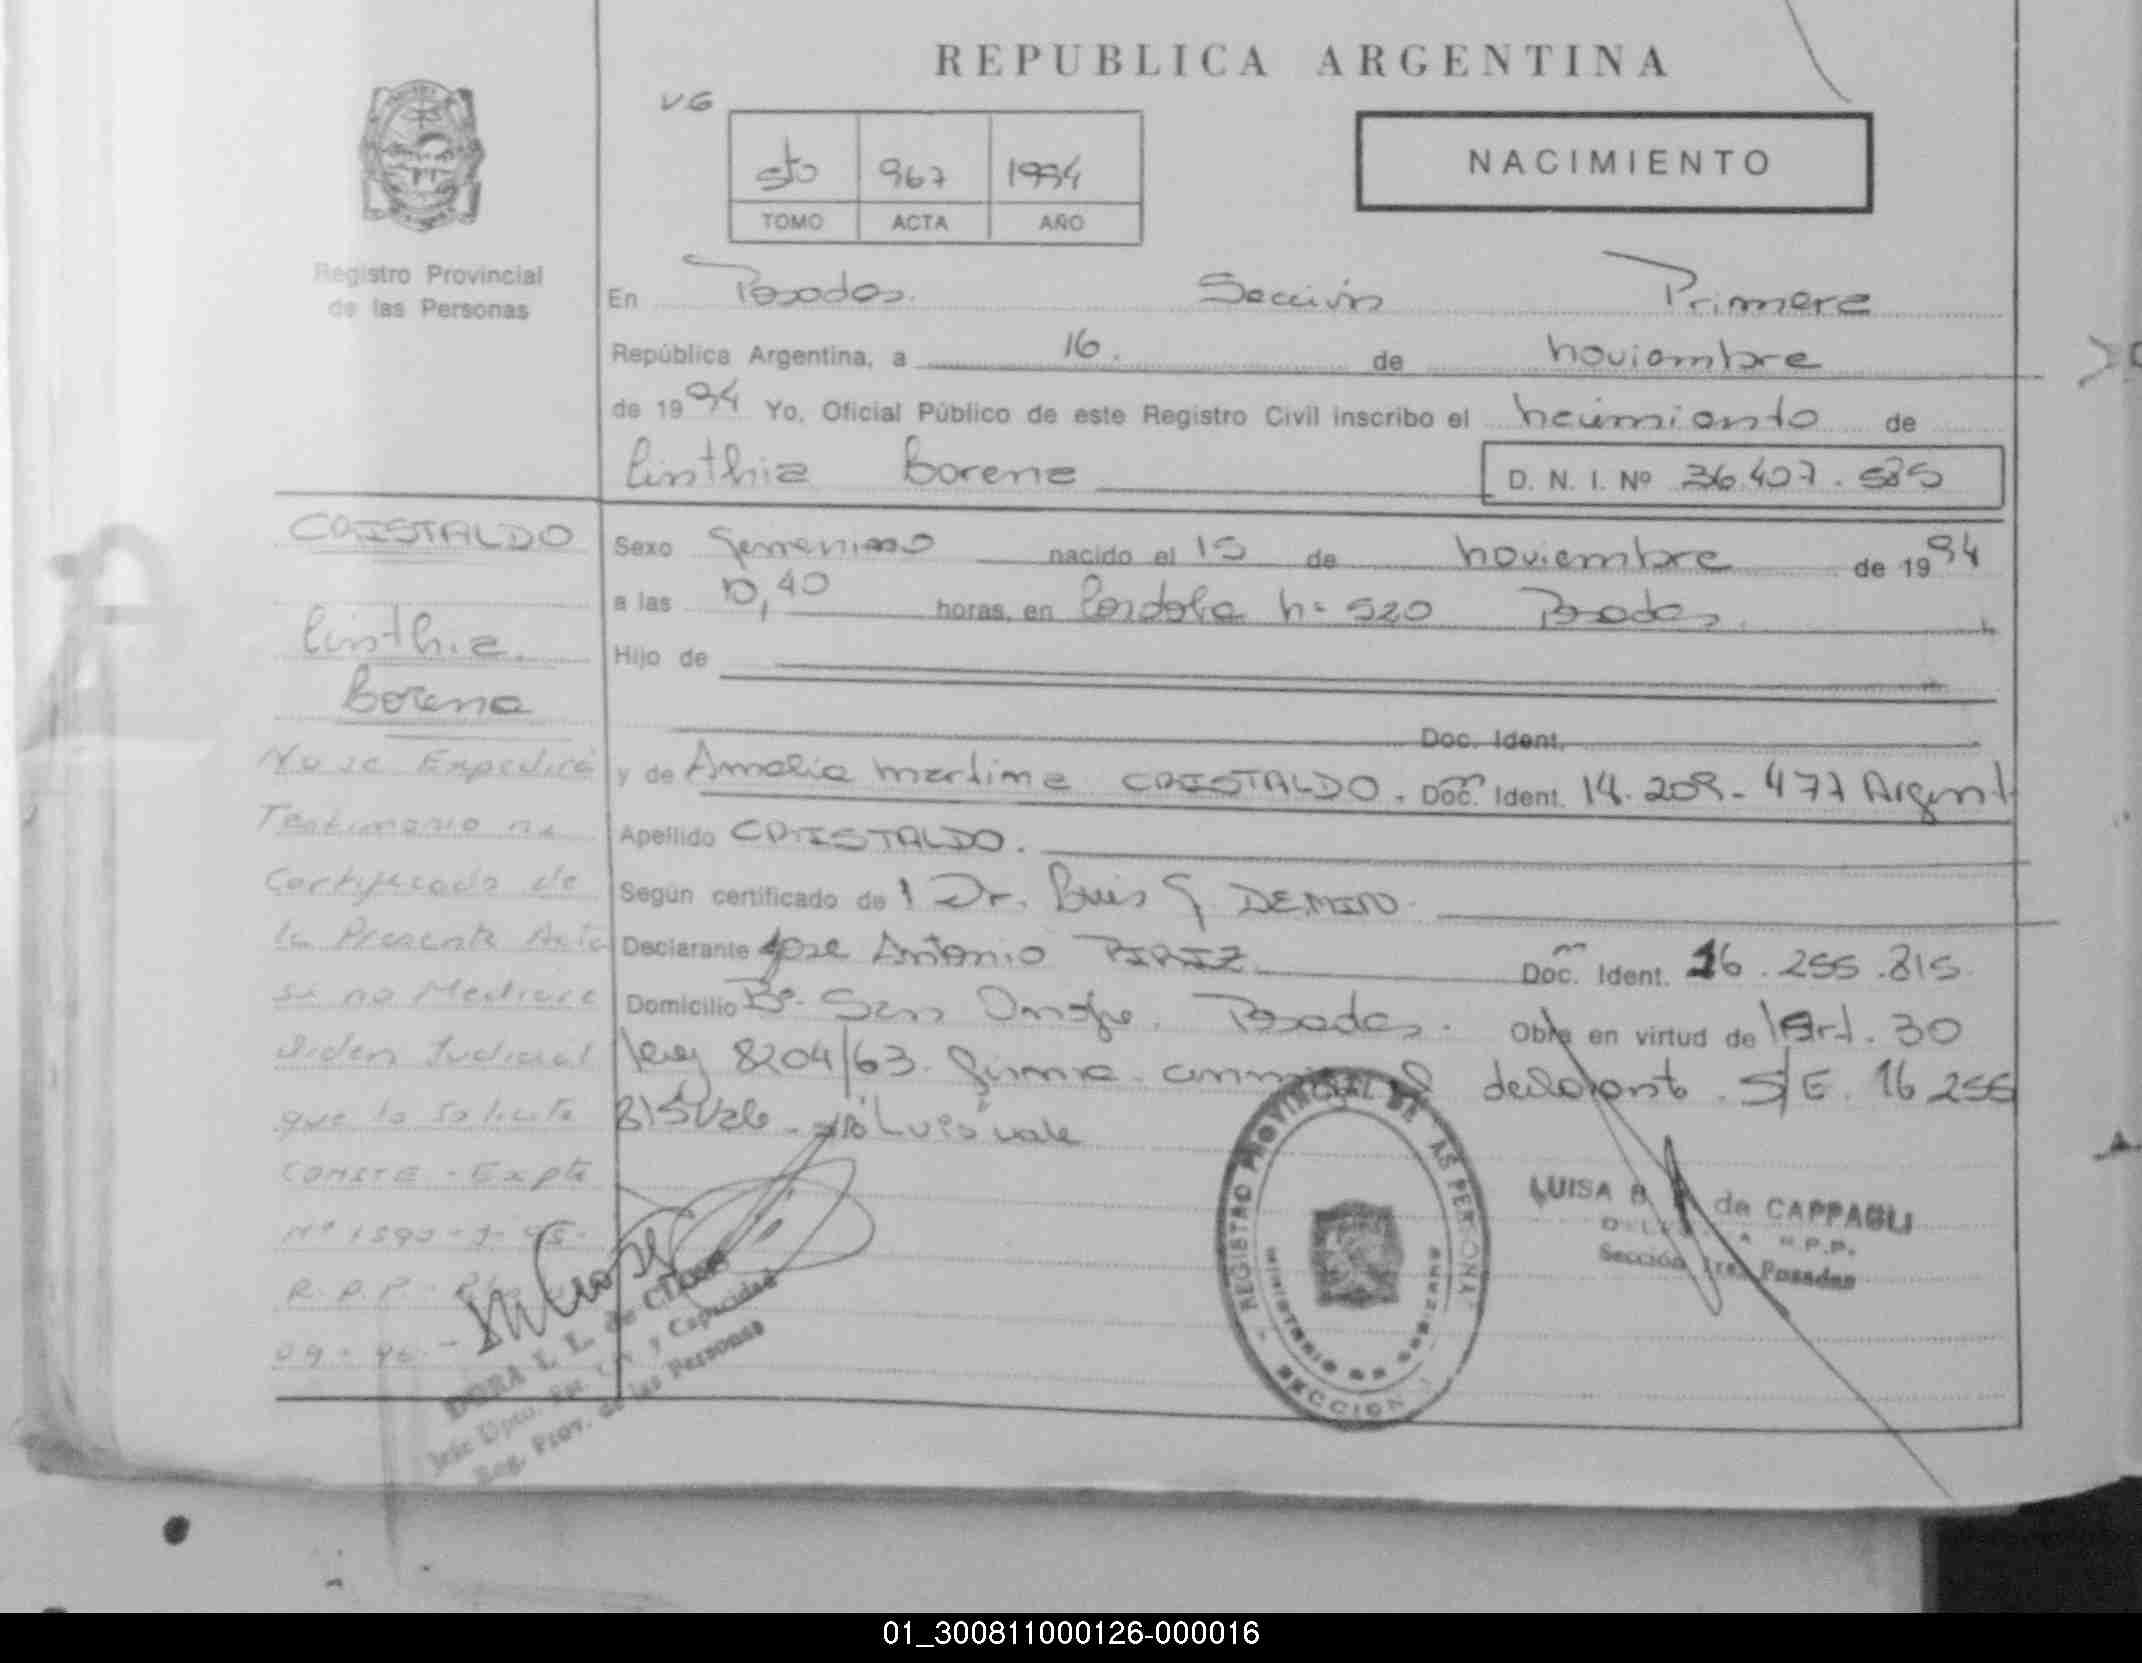 REPUBLICA ARGENTINA
VG
5to 967 1994
TOMO ACTA AÑO
NACIMIENTO
Registro Provincial
de las Personas
En Posadas. Sección Primera
República Argentina, a 16. de noviembre
de 1994 Yo, Oficial Público de este Registro Civil inscribo el nacimiento de
Cinthia Lorena D. N. I. Nº 36.407.585
CRISTALDO
Cinthia
Lorena
Sexo femenino nacido el 15 de noviembre de 1994
a las 10,40 horas, en Cordoba nº 520 Posadas.
Hijo de
Doc. Ident.
y de Amalia Martina CRISTALDO. Doc. Ident. 14.209.477 Argent
Apellido CRISTALDO.
Según certificado de 1 Dr. Luis G DEMIRO.
Declarante Jose Antonio PIRIZ Doc. Ident. 16.255.815
Domicilio Bº San Onofre. Posadas. Obra en virtud de l art. 30
ley 8204/63. firma declarante. S/E. 16 255
815 Vale - "Luis" vale
No se Expedirá
Testimonio ni
Certificado de
la Presente Acta
si no Mediare
Orden Judicial
que lo solicite
CONSTE - Expte
Nº
R.P.P.
09-96.-
DORA L. L. de
y Capacidad
Reg. Prov. de las Personas
REGISTRO PROVINCIAL DE LAS PERSONAS
MINISTERIO DE GOBIERNO
SECCION 1
LUISA de CAPPAGLI
R.P.P.
Sección 1ra. Posadas
01_300811000126-000016